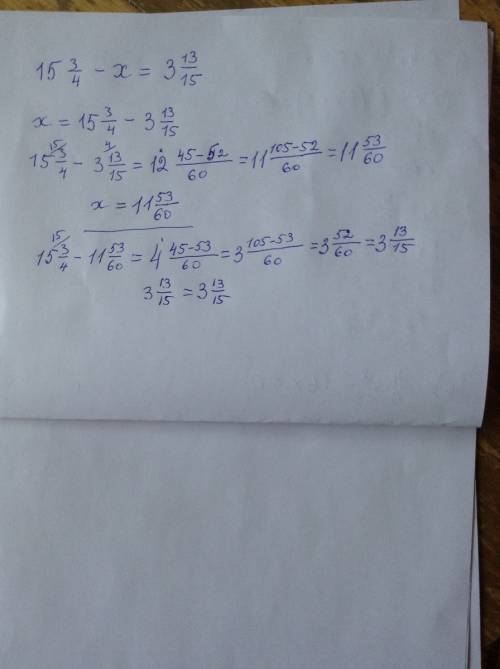 15 3/4 − x = 3 13/15
x = 15 3/4 − 3 13/15
15 3/4 (15 − 3 13/15 (4 = 12 (45−52)/60 = 11 (105−52)/60 = 11 53/60
x = 11 53/60
15 3/4 (15 − 11 53/60 = 4 (45−53)/60 = 3 (105−53)/60 = 3 52/60 = 3 13/15
3 13/15 = 3 13/15